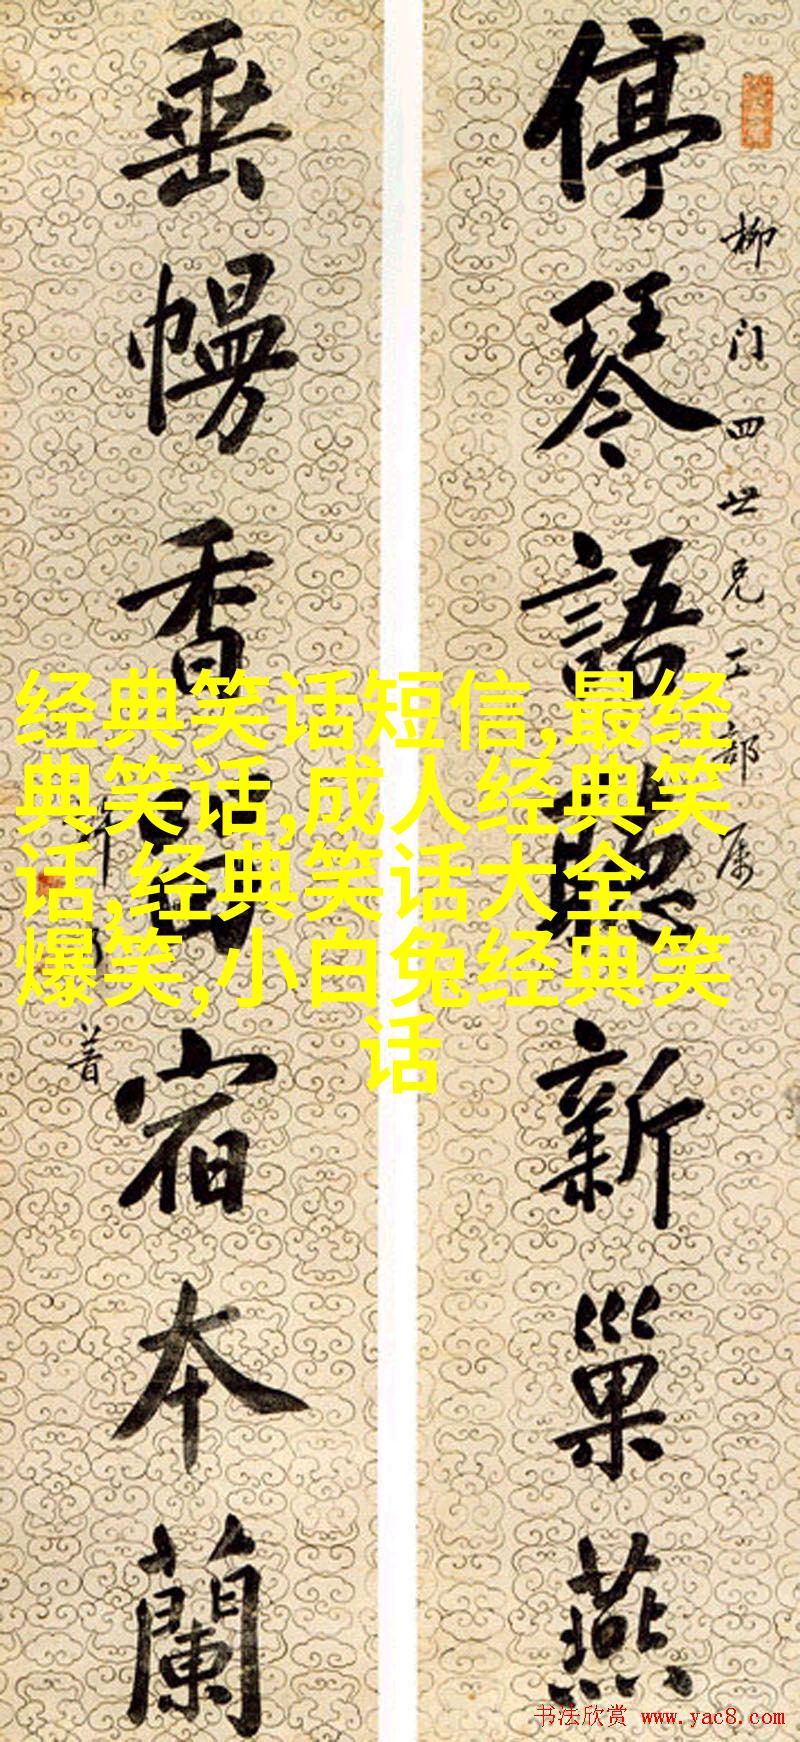 停琴語聽新巢燕
柳门四世兄工部属
垂幔香留宿本蘭
经典笑话短信,最经
典笑话,成人经典笑
话,经典笑话大全
爆笑,小白兔经典笑
话
书法欣赏 www.yac8.com